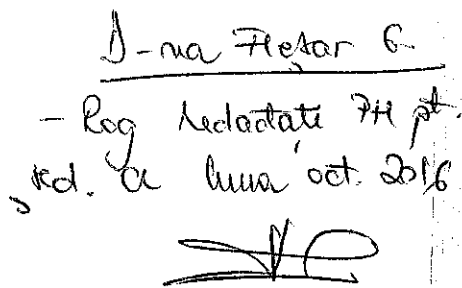 D-na Fleșar G
- Rog redactați PH pt.
șed. a luna oct. 2016